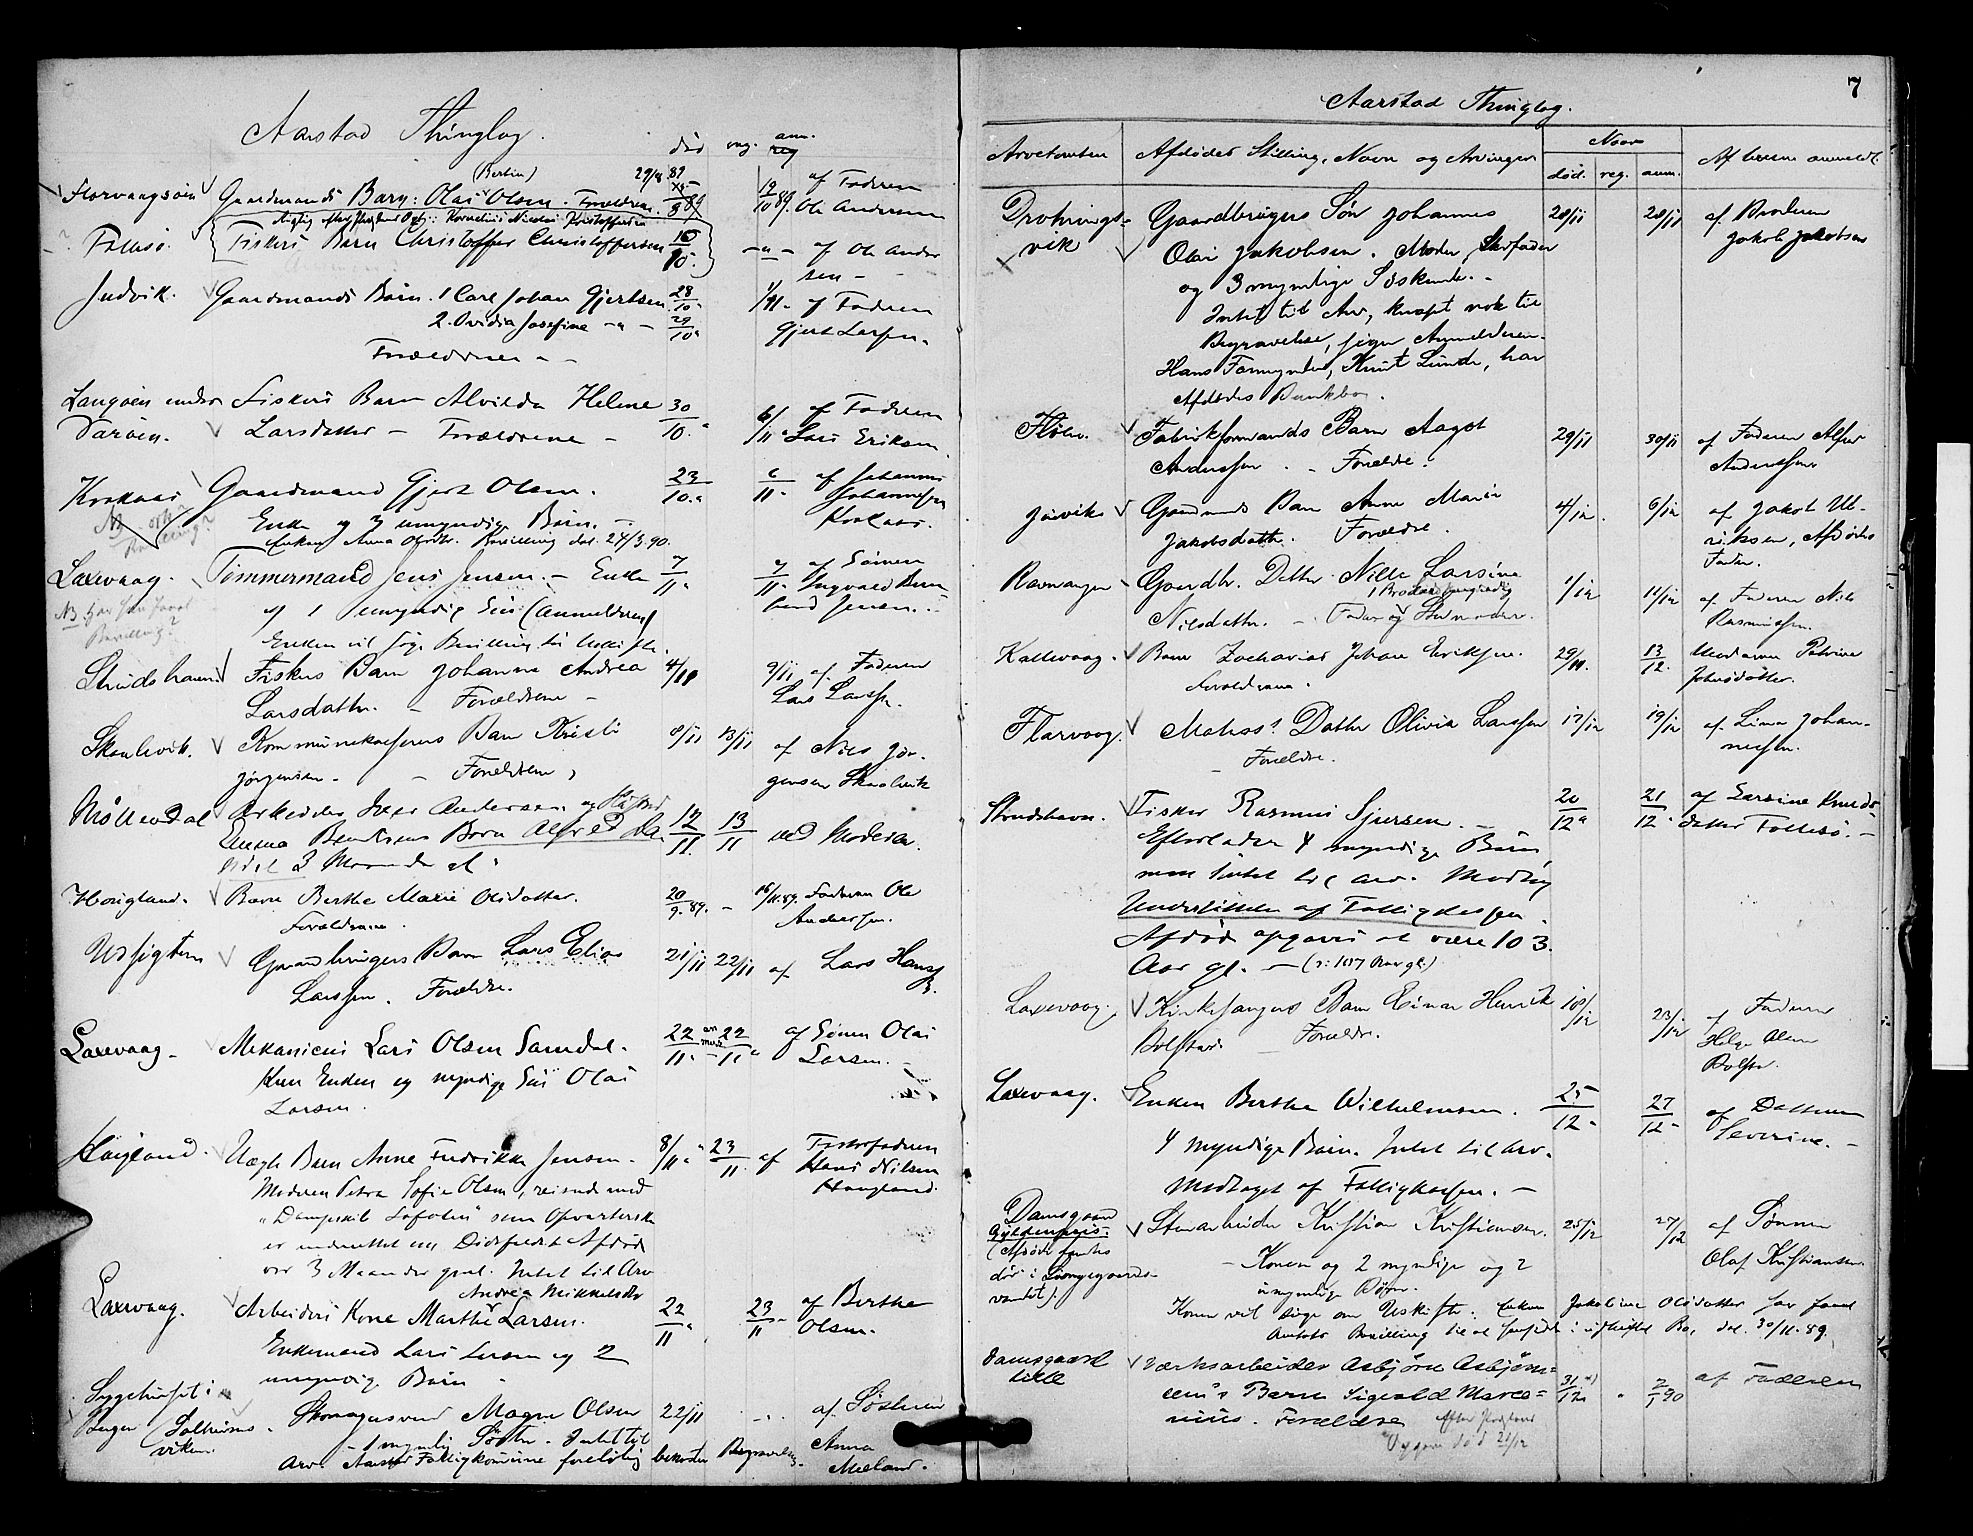 Aarstad Thinglag.
død reg. anm.
reg
(Bertin) 29/8 89
Florvaagsøen Gaardmands Barn: Olai Olsen. Forældrene. 19/10 89. af Faderen
Ole Andersen
Rigtig efter Opg.: Kornelius Nicolai Kristoffersen
Follesø. Fiskers Barn Christoffer Christoffersen 16/10. — " — af Ole Ander
sen —
Indvik. Gaardmands Børn. 1 Carl Johan Gjertsen 28/10 " 1/11 - af Faderen
2. Ovidia Josefine — " — 29/10 " Gjert Larsen.
Forældrene —
Langøen under Fiskers Barn Alvilda Helene 30/10 " 6/11 " af Faderen
Varøen. Larsdatter — Forældrene — Lars Eriksen
Krokaas Gaardmand Gjert Olsen. 23/10 " 6/11 " af Johannes
Johannessen
Enke og 3 umyndige Børn. — Krokaas.
Enken Anna Olsdtr. Bevilling dat. 27/3.90.
Laxevaag. Tømmermand Jens Jensen. — Enke 7/11 " 9/11 " af Sønnen
og 1 umyndig Søn (anmelderen) Ingvald Bern
hard Jensen.
Enken vil søge Bevilling til Uskifte.
Strudshavn Fiskers Barn Johanna Andrea 4/11 9/11 af Faderen
Larsdatter. — Forældrene — Lars Larssen.
Skaalevik. Kommunekasserers Barn Kristi 8/11 13/11 af Nils Jør-
Jørgensen. — Forældrene, gensen Skaalevik
Møllendal Arbeider Iver Andersen og Hustru
Emma Bentsens Barn Alfred da 12/11. 13/11 ved Moderen.
3 Maaneder gl.
Hougland. Barn Berthe Marie Olsdatter. 20/9. 89. — 16/11.89. Faderen Ole
Forældrene. Andersen.
Udsigten Gaardbrugers Barn Lars Elias 21/11 22/11 af Lars Hansen
Larssen. Forældre.
Laxevaag — Mekanicus Lars Olsen Samdal. 22/11 " 22/11 " af Sønnen Olai
Larsen. —
Kun Enken og myndige Søn Olai
Larsen.
Haugland. Uægte Barn Anne Fredrikke Jensen. 8/11 " 23/11 af Fosterfaderen
Hans Nilsen
Haugland.
Moderen Petra Sofie Olsen, reisende med
„Dampskib Lofoten" som Opvarterske
er underrettet om Dødsfaldet Afdøde
var 3 Maaneder gml. Intet til Arv
Andrea Mikkelsdtr
Laxevaag. Arbeiders Kone Marthe Larsen. 22/11 " 23/11 " af Berthe
Olsen.
Enkemand Lars Larsen og 2
umyndige Børn
Sygehuset i
Bergen (Solheims- Skomagersvend Magne Olsen 22/11 af Søsteren
viken. — 1 myndig Søster. Intet til Anna
Arv. Aarstad Fattigkommune foreløbig bekoster Begravelsen. Mæland.
7
Aarstad Thinglag.
Arvetomten Afdødes Stilling, Navn og Arvinger Naar Af hvem anmeldt.
død. reg. anm.
Drotnings- Gaardbrugers Søn Johannes 28/11 28/11 af Broderen
vik Olai Jakobsen. Moder, Stedfader Jakob Jakobsen
og 3 myndige Søskende. —
Intet til Arv, knapt nok til
Begravelse, siger Anmelderen.
Hans Formynder, Knut Lunde, har
Afdødes Bankbog.
Holen. Fabrikformands Barn Aagot 29/11 30/11 af Faderen Alfred
Andersen. — Forældre. Anderssen.
Jørvik Gaardmands Barn Anne Marie 4/12. 6/12 af Jakob Ul-
Jakobsdatter. Forældre. riksen, Afdødes
Fader.
Ravnanger Gaardbr. Datter Nille Larsine 1/12 11/12 af Faderen Nils
1 Broder umyndig
Nilsdatter. — Fader og Stedmoder. Rasmussen.
Kallevaag. Barn Zacharias Johan Eriksen. 29/11. 13/12. Moderen Petrine
Forældrene. Johnsdatter.
Florvaag. Matros' Datter Olivia Larssen 17/12 19/12 af Lina Johan-
— Forældre. nessen.
Strudshavn. Fisker Rasmus Sjursen. — 20/12 " 21/12 " af Larsine Knuds
datter Follesø. —
Efterlader 4 myndige Børn,
men Intet til Arv. Modtog
Understøttelse af Fattigkassen.
Afdød opgaves at være 103
Aar gl. — (o: 107 Aar gl.)
Laxevaag. Kirkesangers Barn Einar Henrik 18/12 23/12 af Faderen
Bolstad. — Forældre. Helge Olsen
Bolstad.
Laxevaag. Enken Berthe Wilhelmsen. 25/12 " 27/12 " af Datteren
Severine. —
4 myndige Børn. Intet til Arv.
Modtaget af Fattigkassen. —
Damsgaard
Gyldenpris. Stenarbeider Kristian Kristiansen. 25/12 27/12 af Sønnen
(Afdøde fandtes Olaf Kristiansen
død i Lungegaards- — Konen og 2 myndige og 2
vandet). umyndige Børn.
Konen vil søge om Uskifte. Enken Jakobine Olsdatter har faaet
Amtets Bevilling til at hensidde i uskiftet Bo, dat. 30/11.89.
Damsgaard Værksarbeider Asbjørn Asbjørn- 31/12 " 2/1 90 af Faderen
lille sen's Barn Sigvald Marti-
nius. Forældre
død 21/12